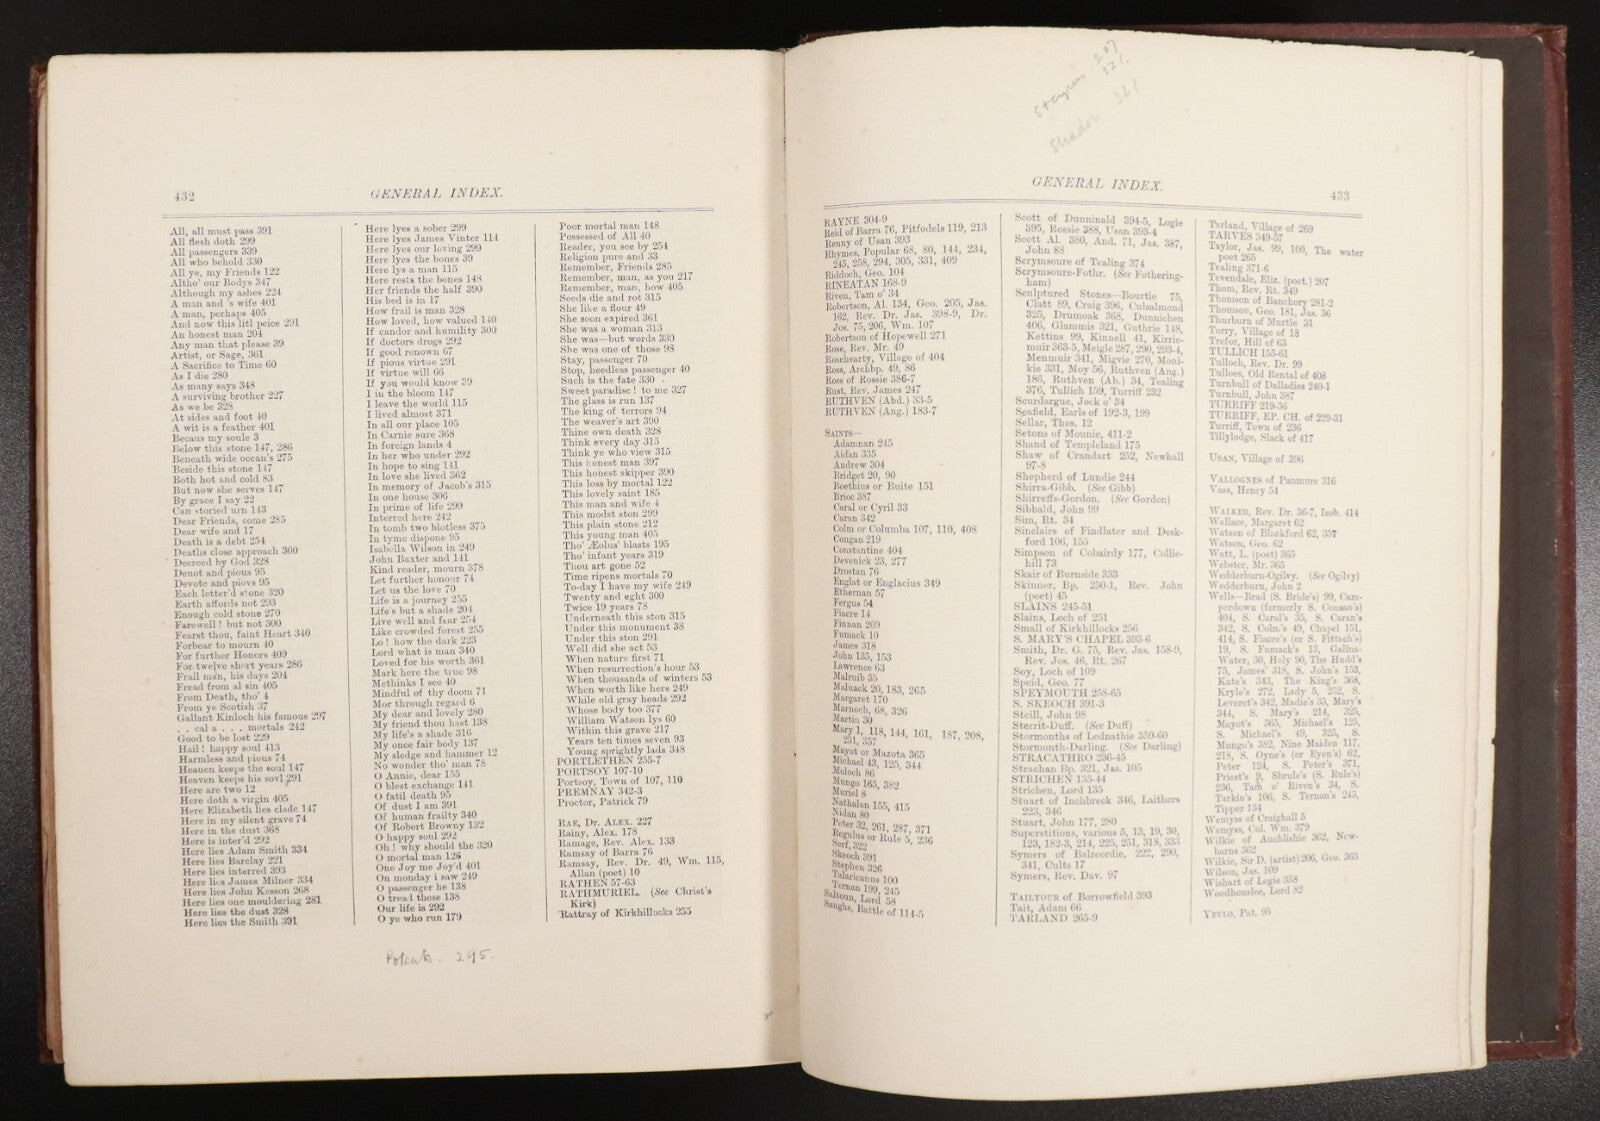 432
GENERAL INDEX.
All, all must pass 391
All flesh doth 299
All passengers 339
All who behold 330
All ye, my Friends 122
Altho' our Bodys 347
Although my ashes 224
A man and 's wife 401
A man, perhaps 405
And now this litl peice 291
An honest man 204
Any man that please 39
Artist, or Sage, 361
A Sacrifice to Time 60
As I die 280
As many says 348
A surviving brother 227
As we be 328
At sides and foot 40
A wit is a feather 401
Becaus my soule 3
Below this stone 147, 286
Beneath wide ocean's 275
Beside this stone 147
Both hot and cold 83
But now she serves 147
By grace I say 22
Can storied urn 143
Dear Friends, come 285
Dear wife and 17
Death is a debt 254
Deaths close approach 300
Decreed by God 328
Deuot and pious 95
Devote and piovs 95
Each letter'd stone 320
Earth affords not 293
Enough cold stone 270
Farewell! but not 300
Fearst thou, faint Heart 340
Forbear to mourn 40
For further Honors 409
For twelve short years 286
Frail man, his days 204
Fread from al sin 405
From Death, tho' 4
From ye Scotish 37
Gallant Kinloch his famous 297
. . cal a . . . mortals 242
Good to be lost 229
Hail! happy soul 413
Harmless and pious 74
Heauen keeps the soul 147
Heaven keeps his sovl 291
Here are two 12
Here doth a virgin 405
Here Elizabeth lies clade 147
Here in my silent grave 74
Here in the dust 368
Here is inter'd 292
Here lies Adam Smith 334
Here lies Barclay 221
Here lies interred 393
Here lies James Milner 334
Here lies John Kesson 268
Here lies one mouldering 281
Here lies the dust 328
Here lies the Smith 391
Here lyes a sober 299
Here lyes James Vinter 114
Here lyes our loving 299
Here lyes the bones 39
Here lys a man 115
Here rests the bones 148
Her friends the half 390
His bed is in 17
How frail is man 328
How loved, how valued 140
If candor and humility 300
If doctors drogs 292
If good renown 67
If pious virtue 291
If virtue will 66
If you would know 39
I in the bloom 147
I leave the world 115
I lived almost 371
In all our place 105
In Carnie sure 368
In foreign lands 4
In her who under 292
In hope to sing 141
In love she lived 362
In memory of Jacob's 315
In one house 306
In prime of life 299
Interred here 242
In tomb two blotless 375
In tyme dispone 95
Isabella Wilson in 249
John Baxter and 141
Kind reader, mourn 378
Let further honour 74
Let us the love 70
Life is a journey 255
Life's but a shade 204
Live well and fear 254
Like crowded forest 255
Lo! how the dark 223
Lord what is man 340
Loved for his worth 361
Mark here the true 98
Methinks I see 40
Mindful of thy doom 71
Mor through regard 6
My dear and lovely 280
My friend thou hast 138
My life's a shade 316
My once fair body 137
My sledge and hammer 12
No wonder tho' man 78
O Annie, dear 155
O blest exchange 141
O fatil death 95
Of dust I am 391
Of human frailty 340
Of Robert Browny 132
O happy soul 292
Oh! why should the 320
O mortal man 126
One Joy me Joy'd 401
On monday i saw 249
O passenger he 138
O tread these 138
Our life is 292
O ye who run 179
Poor mortal man 148
Possessed of All 40
Reader, you see by 254
Religion pure and 33
Remember, Friends 285
Remember, man, as you 217
Remember, man, how 405
Seeds die and rot 315
She like a flour 49
She soon expired 361
She was a woman 313
She was—but words 330
She was one of those 98
Stay, passenger 70
Stop, heedless passenger 40
Such is the fate 330
Sweet paradise! to me 327
The glass is run 137
The king of terrors 94
The weaver's art 390
Thine own death 328
Think every day 315
Think ye who view 315
This honest man 397
This honest skipper 390
This loss by mortal 122
This lovely saint 185
This man and wife 4
This modst ston 299
This plain stone 212
This young man 405
Tho' Æolus' blasts 195
Tho' infant years 319
Thou art gone 52
Time ripens mortals 70
To-day I have my wife 249
Twenty and eght 300
Twice 19 years 78
Underneath this ston 315
Under this monument 38
Under this ston 291
Well did she act 53
When nature first 71
When resurrection's hour 53
When thousands of winters 53
When worth like hers 249
While old gray heads 292
Whose body too 377
William Watson lys 60
Within this grave 217
Years ten times seven 93
Young sprightly lads 348
PORTLETHEN 255-7
PORTSOY 107-10
Portsoy, Town of 107, 110
PREMNAY 342-3
Proctor, Patrick 79
RAE, Dr. ALEX. 227
Rainy, Alex. 178
Ramage, Rev. Alex. 133
Ramsay of Barra 76
Ramsay, Rev. Dr. 49, Wm. 115,
Allan (poet) 10
RATHEN 57-63
RATHMURIEL. (See Christ's
Kirk)
Rattray of Kirkhillocks 255
295.
207
321.
321
GENERAL INDEX.
433
RAYNE 304-9
Reid of Barra 76, Pitfodels 119, 213
Renny of Usan 393
Rhymes, Popular 68, 80, 144, 234,
245, 258, 294, 305, 331, 409
Riddoch, Geo. 104
RINEATAN 168-9
Riven, Tam o' 34
Robertson, Al. 134, Geo. 205, Jas.
162, Rev. Dr. Jas. 398-9, Dr.
Jos. 75, 206, Wm. 107
Robertson of Hopewell 271
Rose, Rev. Mr. 49
Rosehearty, Village of 404
Ross, Archbp. 49, 86
Ross of Rossie 386-7
Rust, Rev. James 247
RUTHVEN (Abd.) 33-5
RUTHVEN (Ang.) 183-7
SAINTS—
Adamnan 245
Aidan 335
Andrew 304
Bridget 20, 90
Boethius or Buite 151
Brioc 387
Caral or Cyril 33
Caran 342
Colm or Columba 107, 110, 408
Congan 219
Constantine 404
Devenick 23, 277
Drostan 76
Englat or Englacius 349
Ethernan 57
Fergus 54
Fiacre 14
Finnan 269
Fumack 10
James 318
John 135, 153
Lawrence 63
Malruib 35
Maluack 20, 183, 265
Margaret 170
Marnoch, 68, 326
Martin 30
Mary 1, 118, 144, 161, 187, 208,
251, 357
Mayot or Mazota 365
Michael 43, 125, 344
Moloch 86
Mungo 165, 382
Muriel 8
Nathalan 155, 415
Nidan 80
Peter 32, 261, 287, 371
Regulus or Rule 5, 236
Serf, 322
Skeoch 391
Stephen 326
Talaricanus 100
Ternan 199, 245
Saltoun, Lord 58
Saughs, Battle of 114-5
Scott of Dunninald 394-5, Logie
395, Rossie 388, Usan 393-4
Scott Al. 380, And. 71, Jas. 387,
John 88
Scrymsoure of Tealing 374
Scrymsoure-Fothr. (See Fothering-
ham)
Sculptured Stones—Bourtie 75,
Clatt 89, Craig 396, Culsalmond
325, Drumoak 368, Dunnichen
406, Glammis 321, Guthrie 148,
Kettins 99, Kinnell 41, Kirrie-
muir 363-5, Meigle 287, 290, 293-4,
Menmuir 341, Migvie 270, Moni-
kie 331, Moy 56, Ruthven (Ang.)
186, Ruthven (Ab.) 34, Tealing
376, Tullich 159, Turriff 232
Scurdargue, Jock o' 34
Seafield, Earls of 192-3, 199
Sellar, Thos. 12
Setons of Mounie, 411-2
Shand of Templeland 175
Shaw of Crandart 252, Newhall
97-8
Shepherd of Lundie 244
Shirra-Gibb. (See Gibb)
Shirreffs-Gordon. (See Gordon)
Sibbald, John 99
Sim, Rt. 34
Sinclairs of Findlater and Desk-
ford 106, 155
Simpson of Cobairdy 177, Collie-
hill 73
Skair of Burnside 333
Skinner, Bp. 230-1, Rev. John
(poet) 45
SLAINS 245-51
Slains, Loch of 251
Small of Kirkhillocks 256
S. MARY'S CHAPEL 393-6
Smith, Dr. G. 75, Rev. Jas. 158-9,
Rev. Jos. 46, Rt. 267
Soy, Loch of 109
Speid, Geo. 77
SPEYMOUTH 258-65
S. SKEOCH 391-3
Steill, John 98
Sterrit-Duff. (See Duff)
Stormonths of Lednathie 359-60
Stormonth-Darling. (See Darling)
STRACATHRO 236-45
Strachan Bp. 321, Jas. 105
STRICHEN 135-44
Strichen, Lord 135
Stuart of Inchbreck 346, Laithers
223, 346
Stuart, John 177, 280
Superstitions, various 5, 13, 19, 30,
123, 182-3, 214, 225, 251, 318, 333
Symers of Balzeordie, 222, 290,
341, Cults 17
Symers, Rev. Dav. 97
TAILYOUR of Borrowfield 393
Tait, Adam 66
TARLAND 265-9
Tarland, Village of 269
TARVES 349-57
Taylor, Jas. 99, 100, The water
poet 265
Tealing 371-6
Tevendale, Eliz. (poet.) 207
Thom, Rev. Rt. 349
Thomson of Banchory 281-2
Thomson, Geo. 181, Jas. 36
Thurburn of Murtle 31
Torry, Village of 18
Trefor, Hill of 63
TULLICH 155-61
Tulloch, Rev. Dr. 99
Tulloes, Old Rental of 408
Turnbull of Dalladies 240-1
Turnbull, John 387
TURRIFF 219-36
TURRIFF, EP. CH. of 229-31
Turriff, Town of 236
Tillylodge, Slack of 417
USAN, Village of 396
VALLOGNES of Panmure 316
Vass, Henry 54
WALKER, Rev. Dr. 36-7, Isob. 414
Wallace, Margaret 62
Watson of Blackford 62, 357
Watson, Geo. 62
Watt, L. (poet) 365
Webster, Mr. 365
Wedderburn-Ogilvy. (See Ogilvy)
Wedderburn, John 2
Wells—Brad (S. Bride's) 99, Cam-
perdown (formerly S. Cousan's)
404, S. Caral's 35, S. Caran's
342, S. Colm's 49, Chapel 151,
414, S. Fiacre's (or S. Fittach's)
19, S. Fumack's 13, Gallna-
Water, 30, Holy 90, The Hudd's
75, James' 318, S. John's 153,
Kate's 343, The King's 368,
Kryle's 272, Lady 5, 252, S.
Leveret's 342, Madie's 35, Mary's
344, S. Mary's 214, 325,
Mayot's 365, Michael's 125,
S. Michael's 49, 325, S.
Mungo's 382, Nine Maiden 117,
218, S. Oyne's (or Eyen's) 62,
Peter 124, S. Peter's 371,
Priest's 9, Sbrule's (S. Rule's)
236, Tam o' Riven's 34, S.
Tarkin's 106, S. Ternan's 245,
Tipper 134
Wemyss of Craighall 5
Wemyss, Col. Wm. 379
Wilkie of Auchlishie 362, New-
barns 362
Wilkie, Sir D. (artist) 206, Geo. 365
Wilson, Jas. 109
Wishart of Logie 358
Woodhouslee, Lord 82
YEVLO, Pat. 95